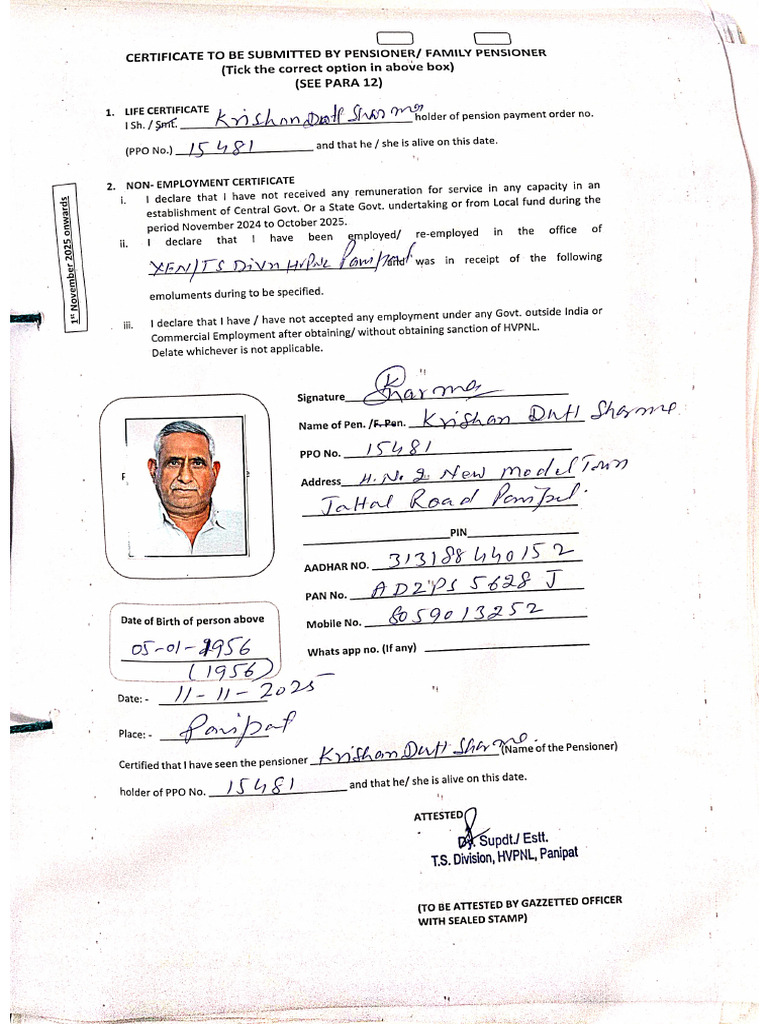 CERTIFICATE TO BE SUBMITTED BY PENSIONER/ FAMILY PENSIONER
(Tick the correct option in above box)
(SEE PARA 12)
1. LIFE CERTIFICATE
I Sh. / Smt. Krishan Dutt Sharma holder of pension payment order no.
(PPO No.) 15481 and that he / she is alive on this date.
2. NON- EMPLOYMENT CERTIFICATE
i. I declare that I have not received any remuneration for service in any capacity in an
establishment of Central Govt. Or a State Govt. undertaking or from Local fund during the
period November 2024 to October 2025.
ii. I declare that I have been employed/ re-employed in the office of
XEN/TS Divn HVPNL Panipat and was in receipt of the following
emoluments during to be specified.
iii. I declare that I have / have not accepted any employment under any Govt. outside India or
Commercial Employment after obtaining/ without obtaining sanction of HVPNL.
Delate whichever is not applicable.
1st November 2025 onwards
Signature Sharma
Name of Pen. /F. Pen. Krishan Dutt Sharma
PPO No. 15481
Address H.No 2 New Model Town
Jattal Road Panipat.
PIN
AADHAR NO. 313188440152
PAN No. ADZPS 5628 J
Mobile No. 8059013252
Whats app no. (If any)
Date of Birth of person above
05-01-1956
(1956)
Date: - 11-11-2025
Place: - Panipat
Certified that I have seen the pensioner Krishan Dutt Sharma. (Name of the Pensioner)
holder of PPO No. 15481 and that he/ she is alive on this date.
ATTESTED
Dy. Supdt./ Estt.
T.S. Division, HVPNL, Panipat
(TO BE ATTESTED BY GAZZETTED OFFICER
WITH SEALED STAMP)